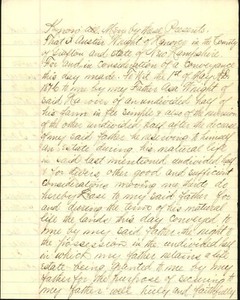 Know all Men by these Presents
That I Austin Wright of Hanover in the County
of Grafton and State of New Hampshire
For and in consideration of a conveyance
this day made, to wit the 1st of May, A.D.
1876 to me by my Father Asa Wright of
said Hanover of an undivided half of
his farm in fee simple & also of the reversion
of the other undivided half after the decease
of my said Father he reserving to himself
an Estate during his natural life
in said last mentioned undivided half
& for divers other good and sufficient
considerations moving me hereto do
hereby lease to my said Father for
and during the term of his natural
life the lands this day conveyed to
me by my said Father the right to
the possession in the undivided half
in which my father retains a life
estate being granted to me by my
father for the purpose of securing to
my father well truly and faithfully